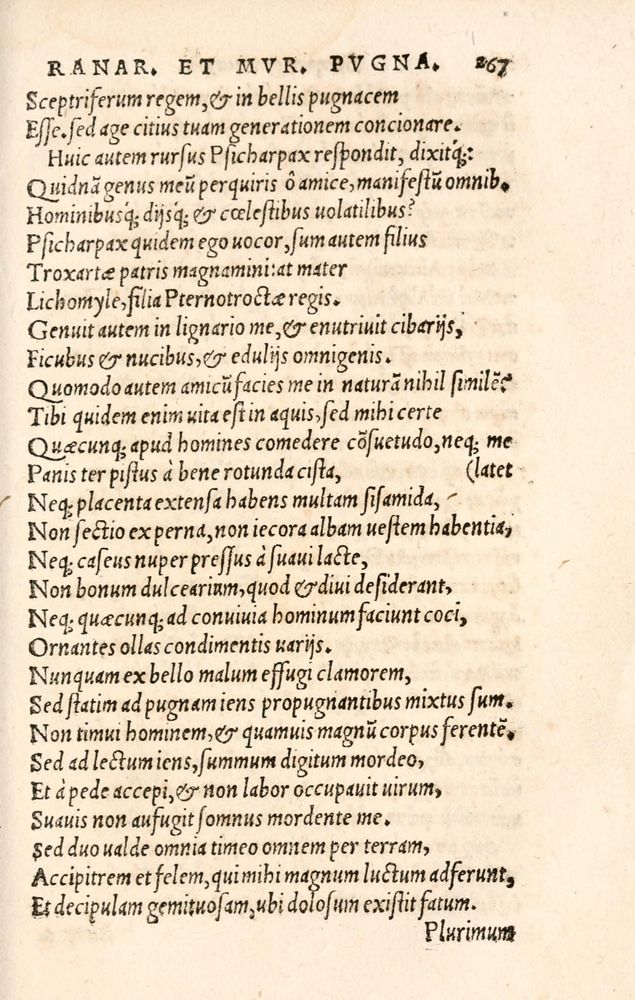 RANAR. ET MVR. PVGNA. 267
Sceptriferum regem, & in bellis pugnacem
Esse. sed age citius tuam generationem concionare.
Huic autem rursus Psicharpax respondit, dixitq́;:
Quidnā genus meū perquiris ô amice, manifestū omnib.
Hominibusq́; dijsq́; & cœlestibus uolatilibus?
Psicharpax quidem ego uocor, sum autem filius
Troxartæ patris magnamini: at mater
Lichomyle, filia Pternotroctæ regis.
Genuit autem in lignario me, & enutriuit cibarijs,
Ficubus & nucibus, & edulijs omnigenis.
Quomodo autem amicū facies me in naturā nihil similē?
Tibi quidem enim uita est in aquis, sed mihi certe
Quæcunq; apud homines comedere cōsuetudo, neq; me
Panis ter pistus à bene rotunda cista, (latet
Neq; placenta extensa habens multam sisamida,
Non sectio ex perna, non iecora albam uestem habentia,
Neq; caseus nuper pressus à suaui lacte,
Non bonum dulcearium, quod & diui desiderant,
Neq; quæcunq; ad conuiuia hominum faciunt coci,
Ornantes ollas condimentis uarijs.
Nunquam ex bello malum effugi clamorem,
Sed statim ad pugnam iens propugnantibus mixtus sum.
Non timui hominem, & quamuis magnū corpus ferentē.
Sed ad lectum iens, summum digitum mordeo,
Et à pede accepi, & non labor occupauit uirum,
Suauis non aufugit somnus mordente me.
Sed duo ualde omnia timeo omnem per terram,
Accipitrem et felem, qui mihi magnum luctum adferunt,
Et decipulam gemituosam, ubi dolosum existit fatum.
Plurimum